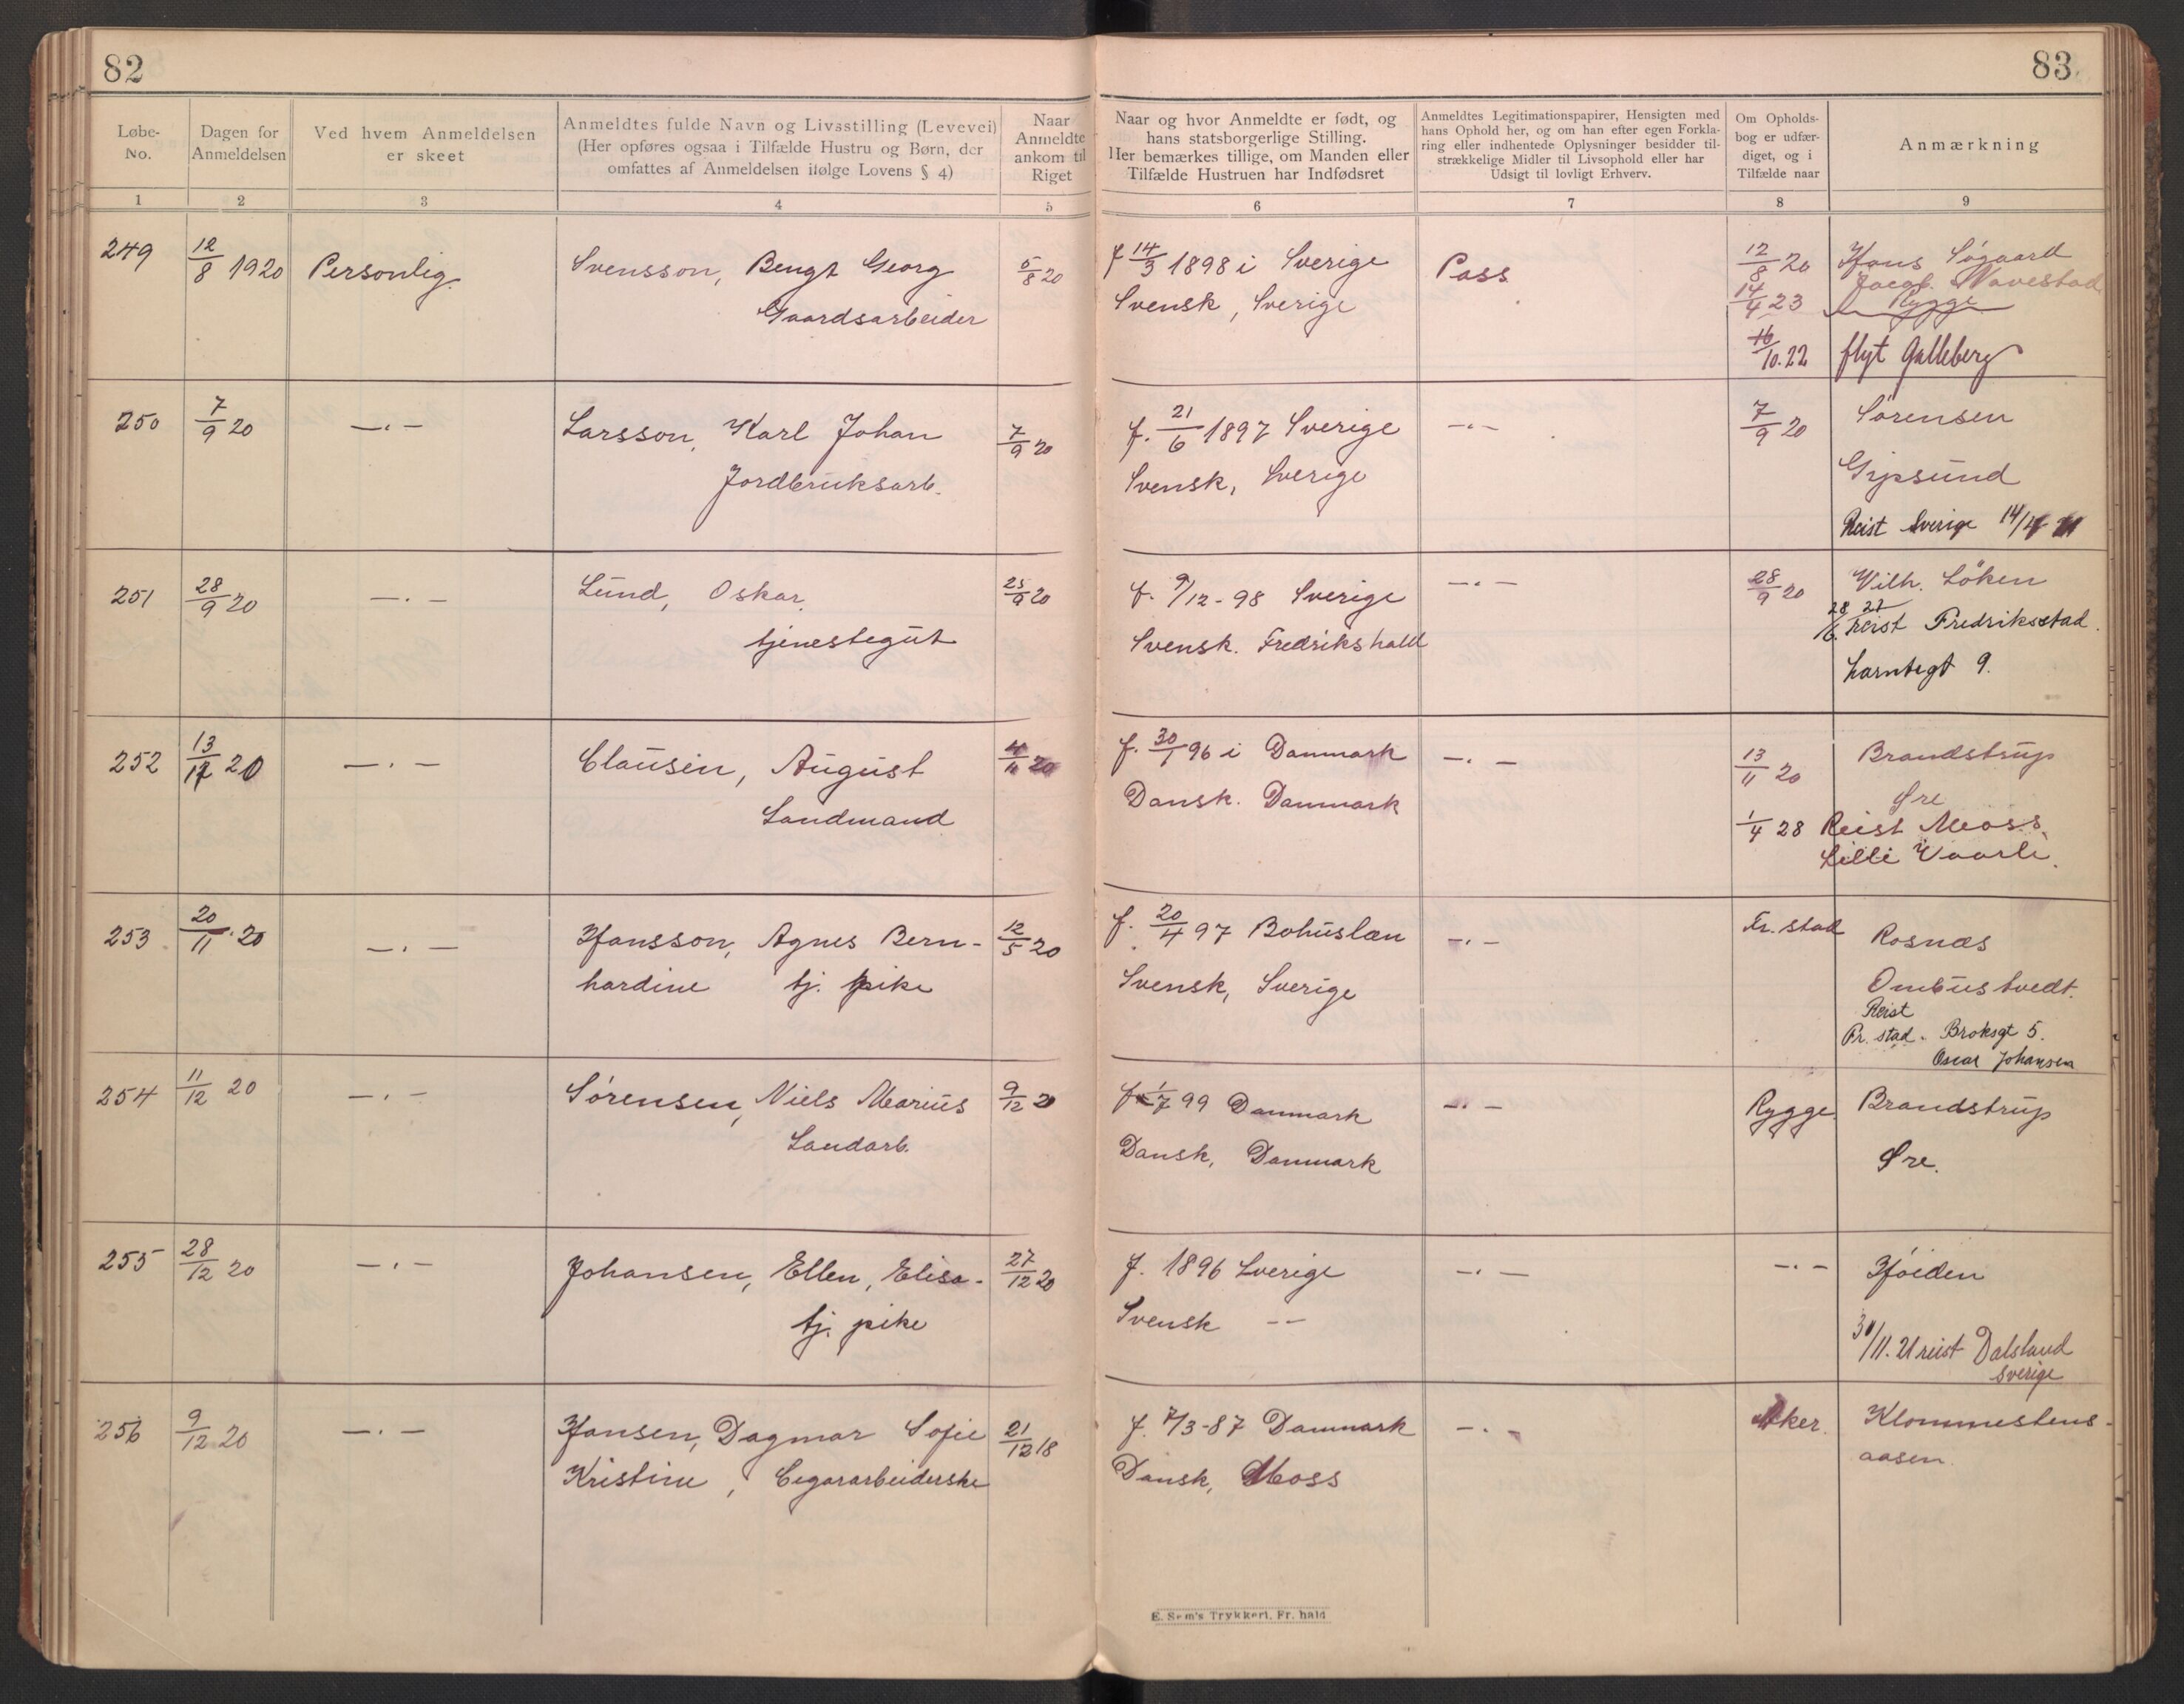 82
Løbe-No.
Dagen for Anmeldelsen
Ved hvem Anmeldelsen er skeet
Anmeldtes fulde Navn og Livsstilling (Levevei)
(Her opføres ogsaa i Tilfælde Hustru og Børn, der
omfattes af Anmeldelsen ifølge Lovens § 4)
Naar Anmeldte ankom til Riget
1 2 3 4 5
249 12/8 1920 Personlig. Svensson, Bengt Georg 5/8 20
Gaardsarbeider
250 7/9 20 —.— Larsson, Karl Johan 7/9 20
Jordbruksarb.
251 28/9 20 —.— Lund, Oskar, 25/9 20
tjenestegut
252 13/11 20 —.— Clausen, August 4/11 20
Landmand
253 20/11 20 —.— Hansson, Agnes Bern- 12/5 20
hardine tj. pike
254 11/12 20 —.— Sørensen, Niels Marius 9/12 20
Landarb.
255 28/12 20 —.— Johansen, Ellen, Elisa- 27/12 20
tj. pike
256 9/12 20 —.— Hansen, Dagmar Sofie 21/12 18
Kristine, Cigararbeiderske
83
Naar og hvor Anmeldte er født, og
hans statsborgerlige Stilling.
Her bemærkes tillige, om Manden eller
Tilfælde Hustruen har Indfødsret
Anmeldtes Legitimationspapirer, Hensigten med
hans Ophold her, og om han efter egen Forkla-
ring eller indhentede Oplysninger besidder til-
strækkelige Midler til Livsophold eller har
Udsigt til lovligt Erhverv.
Om Opholds-
bog er udfær-
diget, og i
Tilfælde naar
Anmærkning
6 7 8 9
f 14/3 1898 i Sverige Pass 12/8 20 Hans Søgaard
Jacob. Navestad
Svensk, Sverige 14/4 23 Rygge
16/10.22 flyt Galleberg
f. 21/6 1897 Sverige —.— 7/9 20 Sørensen
Svensk, Sverige Gipsund
Reist Sverige 14/4 21
f. 9/12-98 Sverige —.— 28/9 20 Wilh. Löken
28/6 22 reist Fredriksstad.
Svensk. Fredrikshald
f. 30/1 96 i Danmark —.— 13/11 20 Brandstrup
Dansk. Danmark Øre
1/4 28 Reist Moss.
Lilli Vaarli.
f. 20/4 97 Bohuslæn —.— Fr. stad Rosnæs
Svensk, Sverige Ombustvedt.
Reist
Fr. stad. Broksgt 5.
Oscar Johansen
f 1/7 99 Danmark —.— Rygge Brandstrup
Dansk, Danmark Øre.
f. 1896 Sverige —.— —.— Høiden
Svensk — —
30/11.21 reist Dalsland
Sverige
f. 7/3-87 Danmark —.— Aker. Klommestens-
Dansk, Moss aasen
E. Sem's Trykkeri, Fr. hald